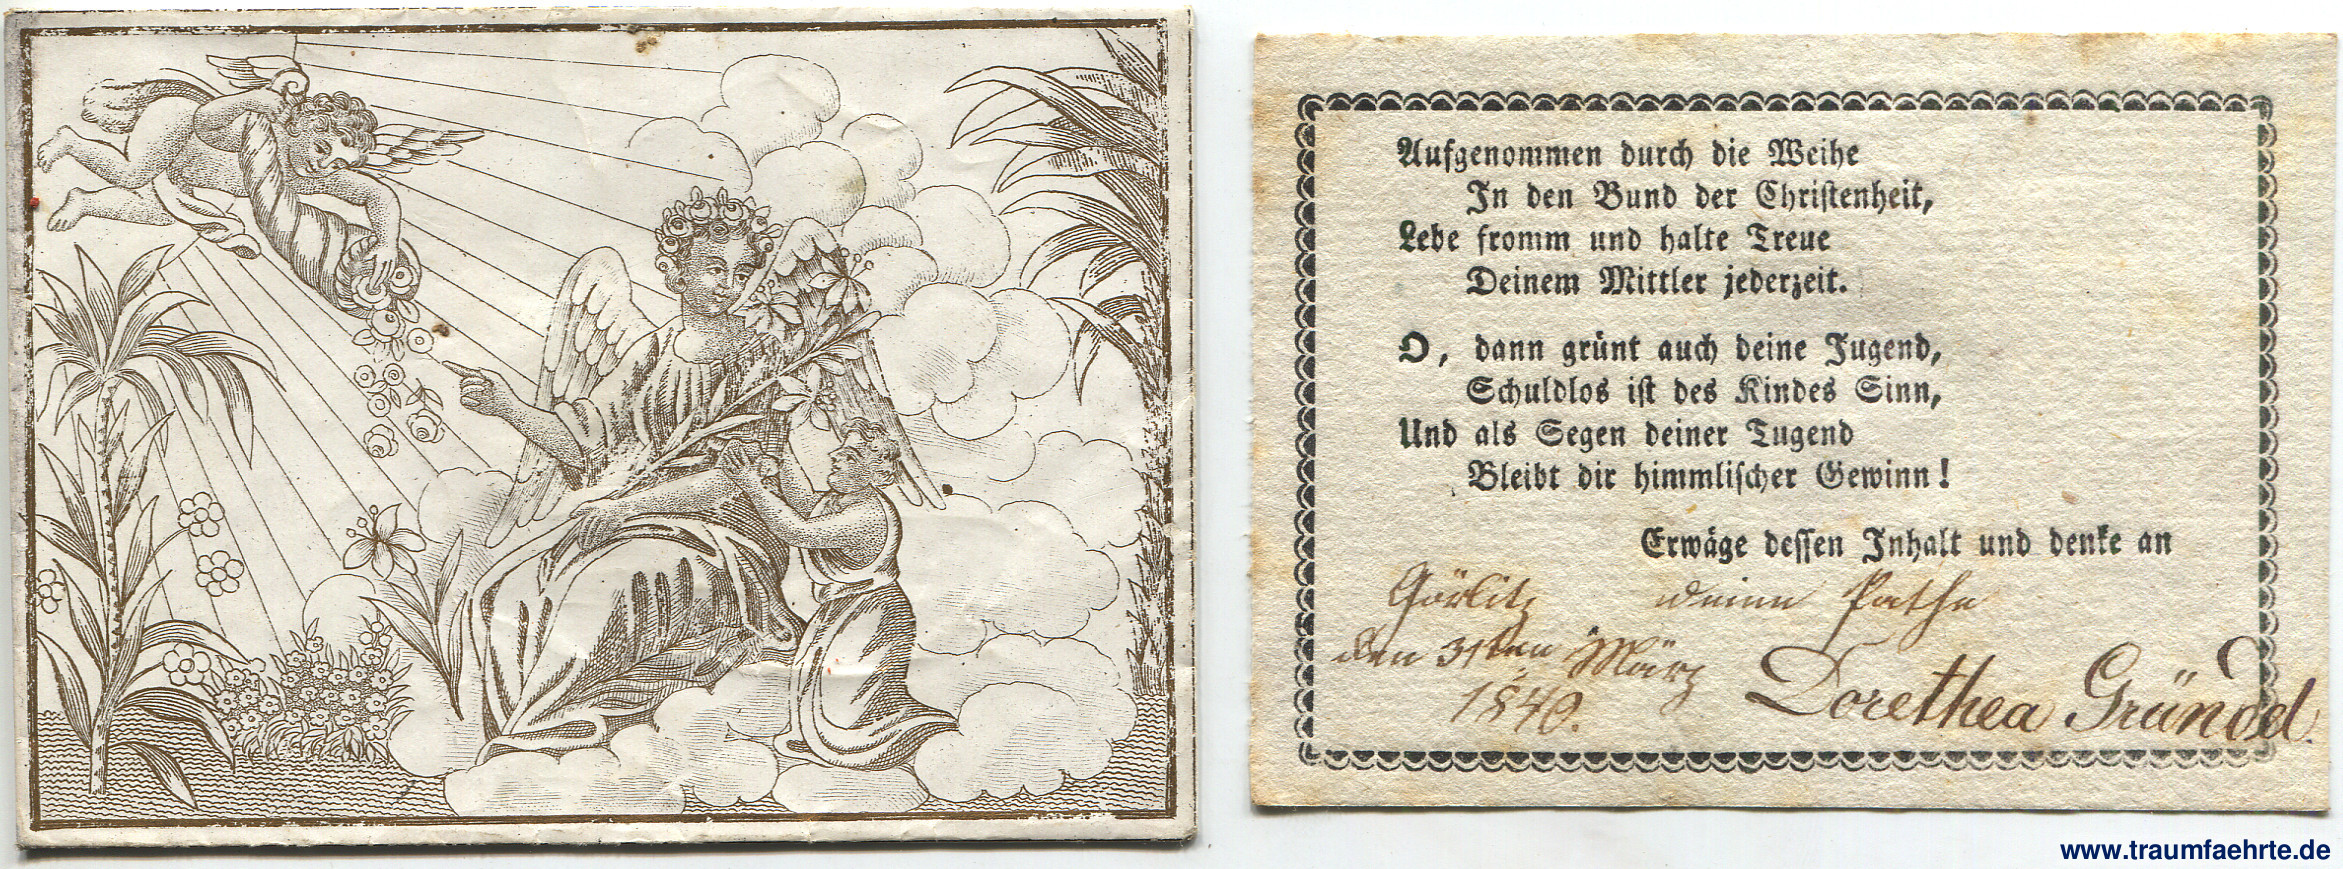 Aufgenommen durch die Weihe
In den Bund der Christenheit,
Lebe fromm und halte Treue
Deinem Mittler jederzeit.
O, dann grünt auch deine Jugend,
Schuldlos ist des Kindes Sinn,
Und als Segen deiner Tugend
Bleibt dir himmlischer Gewinn!
Erwäge dessen Inhalt und denke an
Görlitz deine Pathe
den 31ten März
1840.
Dorethea Gründel.
www.traumfaehrte.de